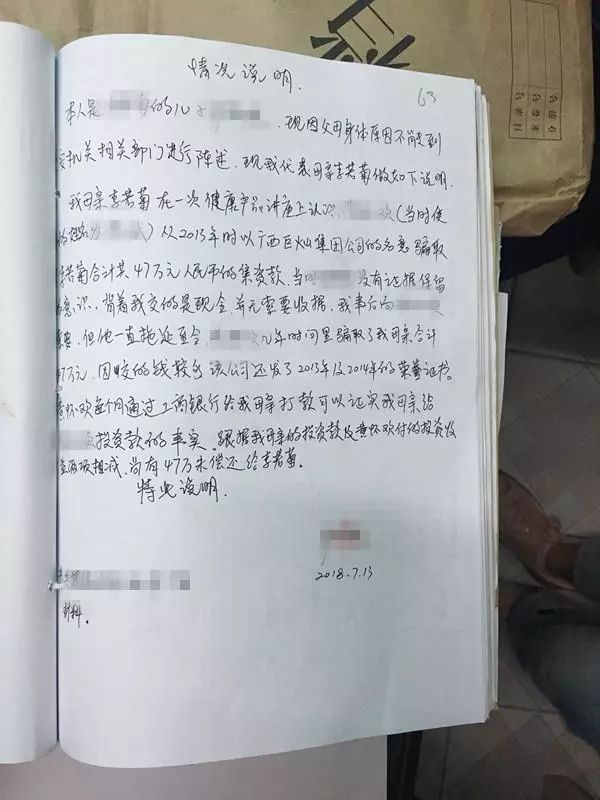 情况说明.
63
本人是的儿子,现因父母身体原因不能到
机关相关部门进行陈述.现我代表母亲李若菊做如下说明.
我母亲李若菊在一次健康产品讲座上认识次(当时使
)从2013年时以广西巨灿集团公司的名意骗取
李若菊合计共47万元人民币的集资款.当时没有证据保留
意识.背着我交的是现金并无索要收据.我事后向
索要.但他一直拖延至今.几年时间里骗取了我母亲合计
47万元.因交的钱较多该公司还发了2013年及2014年的荣董证书.
黄怀欢每个月通过工商银行给我母亲打款可以证实我母亲给
投资款的事实.跟据我母亲的投资款及黄怀欢付的投资收
益两项相减.尚有47万未偿还给李若菊.
特此说明.
2018.7.13
材料.